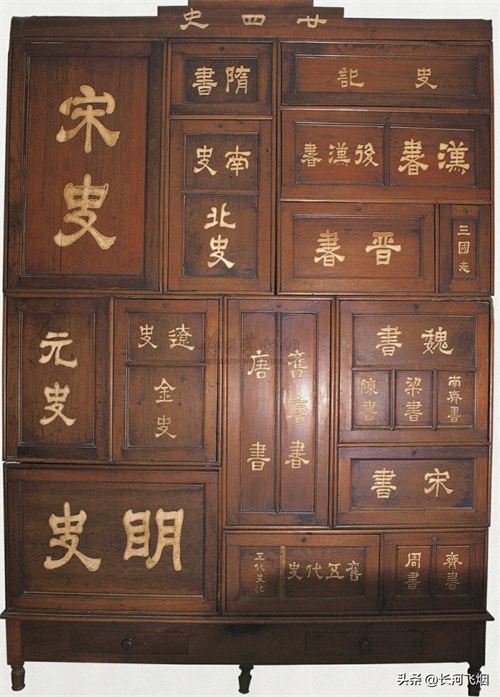 廿四史
史記
漢書
後漢書
晉書
三國志
隋書
南史
北史
宋史
魏書
南齊書
梁書
陳書
宋書
舊唐書
唐書
遼史
金史
元史
齊書
周書
舊五代史
五代史記
明史
头条 @长河飞烟